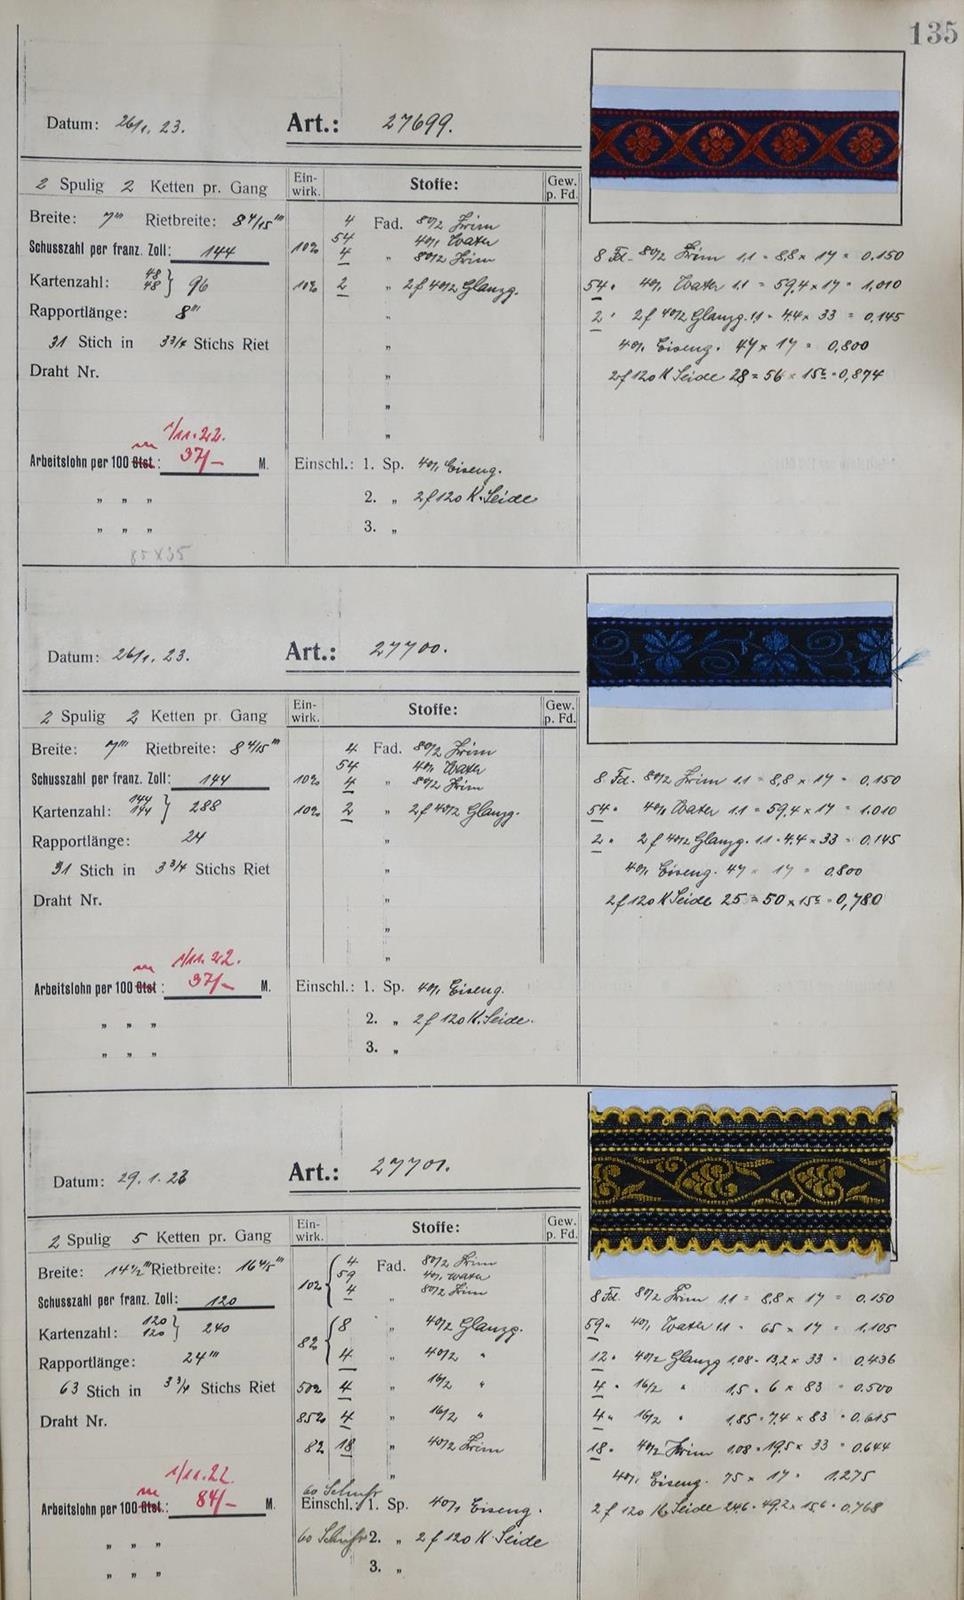 135
Datum: 26/1. 23. Art.: 27699.
2 Spulig 2 Ketten pr. Gang
Ein-wirk. Stoffe: Gew. p. Fd.
Breite: 7''' Rietbreite: 8 4/15'''
Schusszahl per franz. Zoll: 144
Kartenzahl: 48 48 } 96
Rapportlänge: 8'''
31 Stich in 3 3/4 Stichs Riet
Draht Nr.
1/11.22.
Arbeitslohn per 100 Stst.: m 37/- M.
" " "
" " "
85 x 35
4 Fad. 80/2 Zwirn
10% 54 40/1 Water
4 " 80/2 Zwirn
10% 2 " 2f 40/2 Glanzg.
"
"
"
"
"
Einschl.: 1. Sp. 40/1 Eiseng.
2. " 2f 120 K. Seide
3. "
8 Fd. 80/2 Zwirn 1,1 = 8,8 x 17 = 0.150
54 " 40/1 Water 1.1 = 59,4 x 17 = 1,010
2 " 2f 40/2 Glanzg. 1,1 = 4.4 x 33 = 0,145
40/1 Eiseng. 47 x 17 = 0,800
2f 120 K Seide 28 = 56 x 15⁶ = 0,874
Datum: 26/1. 23. Art.: 27700.
2 Spulig 2 Ketten pr. Gang
Ein-wirk. Stoffe: Gew. p. Fd.
Breite: 7''' Rietbreite: 8 4/15'''
Schusszahl per franz. Zoll: 144
Kartenzahl: 144 144 } 288
Rapportlänge: 24
31 Stich in 3 3/4 Stichs Riet
Draht Nr.
1/11.22.
Arbeitslohn per 100 Stst: m 37/- M.
" " "
" " "
4 Fad. 80/2 Zwirn
10% 54 40/1 Water
4 " 80/2 Zwirn
10% 2 " 2f 40/2 Glanzg.
"
"
"
"
"
Einschl.: 1. Sp. 40/1 Eiseng.
2. " 2f 120 K. Seide.
3. "
8 Fd. 80/2 Zwirn 1.1 = 8,8 x 17 = 0,150
54 " 40/1 Water 1.1 = 59,4 x 17 = 1.010
2 " 2f 40/2 Glanzg. 1.1 = 4.4 x 33 = 0.145
40/1 Eiseng. 47 x 17 = 0,800
2f 120 K Seide 25 = 50 x 15⁶ = 0,780
Datum: 29.1.23 Art.: 27701.
2 Spulig 5 Ketten pr. Gang
Ein-wirk. Stoffe: Gew. p. Fd.
Breite: 14 1/2''' Rietbreite: 16 4/5'''
Schusszahl per franz. Zoll: 120
Kartenzahl: 120 120 } 240
Rapportlänge: 24'''
63 Stich in 3 3/4 Stichs Riet
Draht Nr.
1/11.22.
Arbeitslohn per 100 Stst.: m 84/- M.
" " "
" " "
4 Fad. 80/2 Zwirn
10% { 59 40/1 Water
4 " 80/2 Zwirn
8% { 8 " 40/2 Glanzg.
4 " 40/2 "
50% 4 " 16/2 "
85% 4 " 16/2 "
8% 18 " 40/2 Zwirn
"
60 Schuß
Einschl.: 1. Sp. 40/1 Eiseng.
60 Schuß 2. " 2f 120 K. Seide
3. "
8 Fd. 80/2 Zwirn 1.1 = 8,8 x 17 = 0.150
59 " 40/1 Water 1.1 = 65 x 17 = 1,105
12 " 40/2 Glanzg 1,08 = 13,2 x 33 = 0,436
4 " 16/2 " 1,5 = 6 x 83 = 0.500
4 " 16/2 " 1,85 = 7,4 x 83 = 0.615
18 " 40/2 Zwirn 1,08 = 19,5 x 33 = 0.644
40/1 Eiseng. 75 x 17 = 1,275
2f 120 K. Seide 24,6 = 49,2 x 15,6 = 0,768